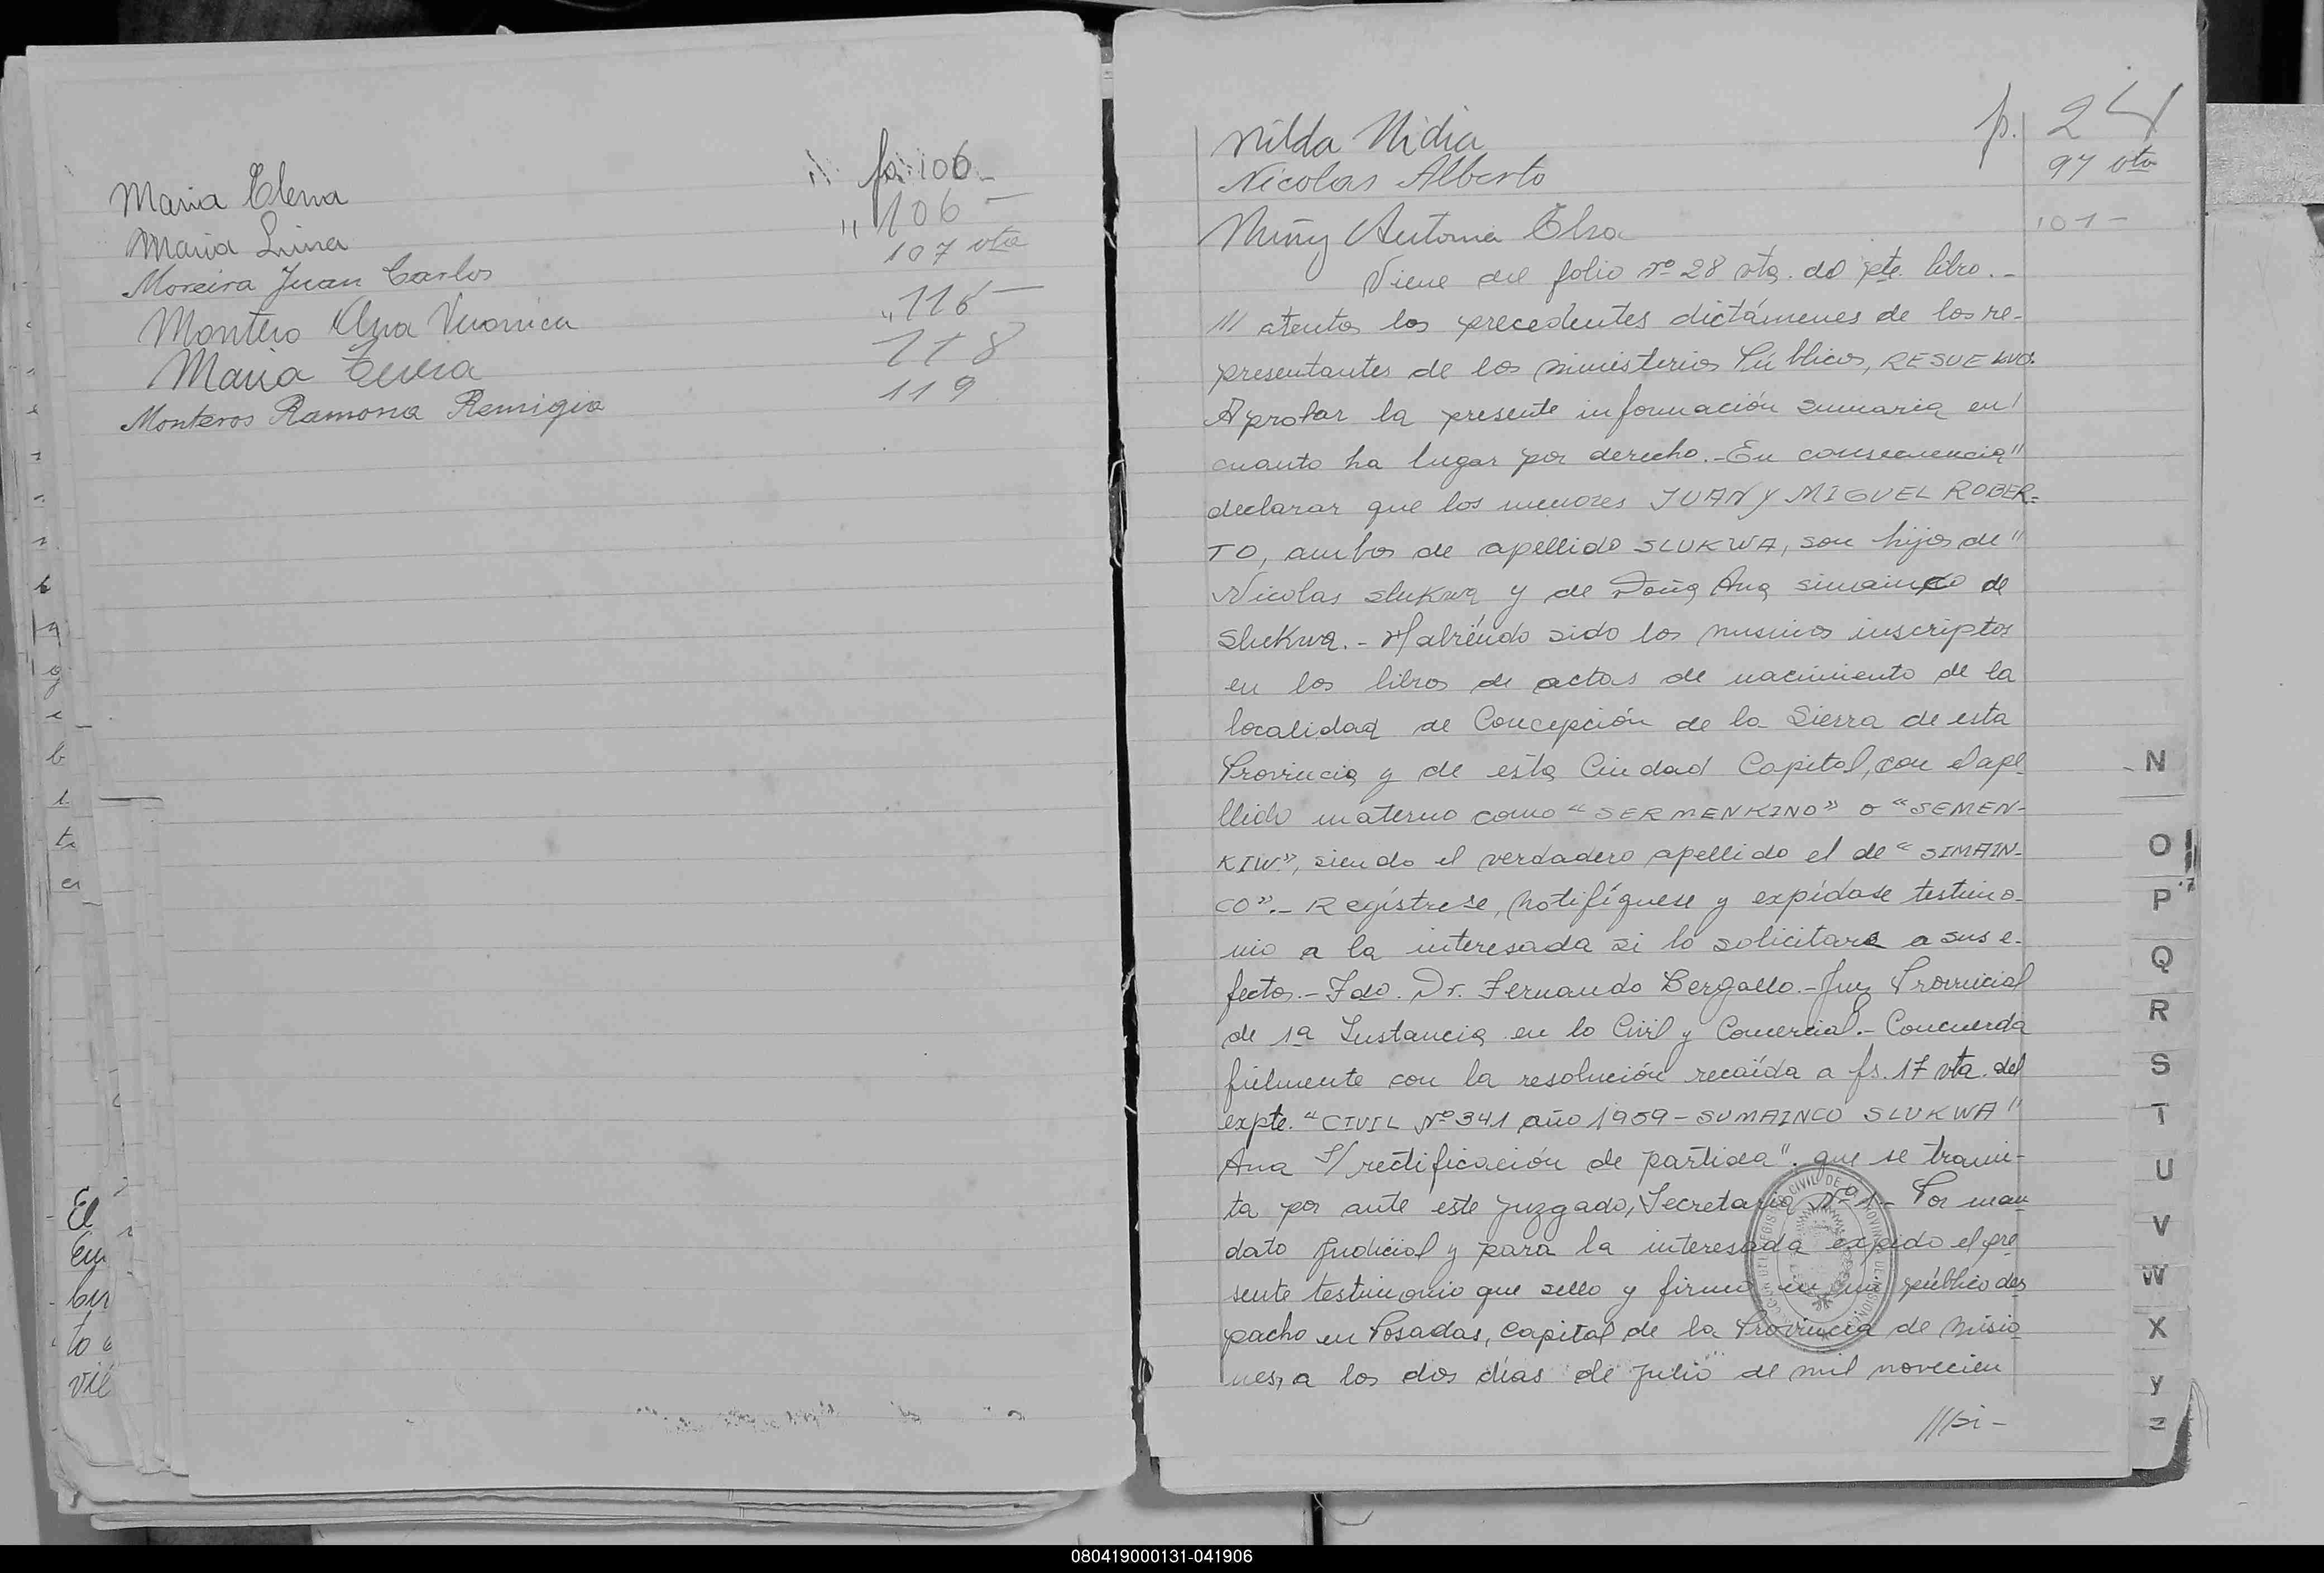 Maria Elena fs. 106-
Maria Luisa " 106 -
Moreira Juan Carlos 107 vta
Montero Ana Veronica " 116 -
Maria Teresa 118
Monteros Ramona Remigia 119
Nilda Nidia f. 24
Nicolas Alberto 97 vta
Muñy Antonia Elsa 101-
Viene del folio nº 28 vta. del pte. libro.-
/// atentos los precedentes dictámenes de los re-
presentantes de los ministerios Públicos, RESUELVO.
Aprobar la presente información sumaria en/
cuanto ha lugar por derecho.- En consecuencia"
declarar que los menores JUAN y MIGUEL ROBER=
TO, ambos de apellido SLUKWA, son hijos de"
Nicolas Slukwa y de Doña Ana Simainco de
Slukwa.- Habiendo sido los mismos inscriptos
en los libros de actas de nacimiento de la
localidad de Concepción de la Sierra de esta
Provincia y de esta Ciudad Capital, con el ape
llido materno como "SERMENKINO" o "SEMEN-
KIW", siendo el verdadero apellido el de "SIMAIN-
CO".- Regístrese, notifíquese y expídase testimo-
nio a la interesada si lo solicitara a sus e-
fectos.- Fdo. Dr. Fernando Bergallo.- Juez Provincial
de 1ª Instancia en lo Civil y Comercial.- Concuerda
fielmente con la resolución recaída a fs. 17 vta. del
expte. "CIVIL Nº 341 año 1959 - SUMAINCO SLUKWA"
Ana S/ rectificación de partida". que se trami-
ta por ante este juzgado, Secretaria Nº 1.- Por man
dato Judicial y para la interesada expido el pre
sente testimonio que sello y firmo en mi público des
pacho en Posadas, Capital de la Provincia de Misio
nes, a los dos días de julio de mil novecien
N
O
P
Q
R
S
T
U
V
W
X
y
Z
El
080419000131-041906